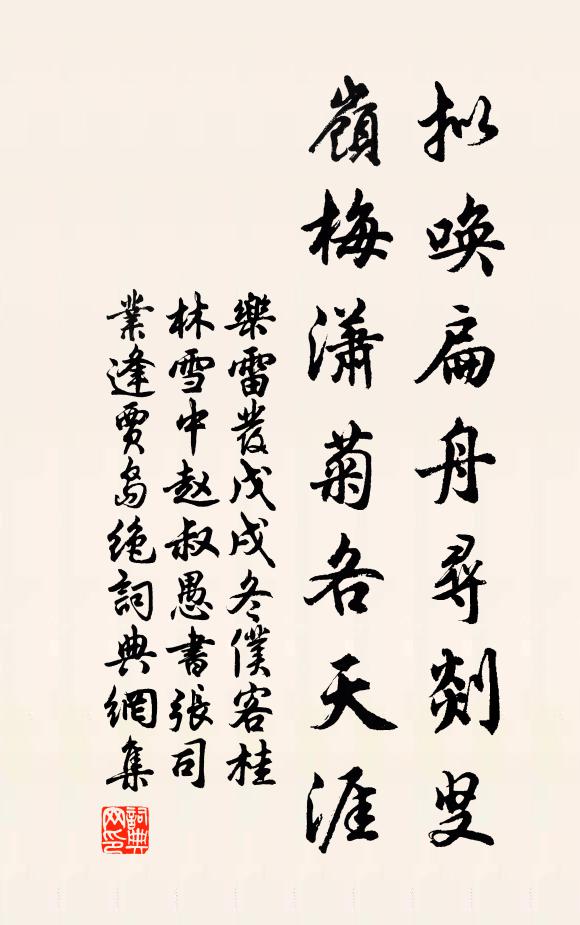 拟唤扁舟寻剡叟
嶺梅瀟菊各天涯
樂雷發戊戌冬僕客桂
林雪中赵叔愚書張司
業逢賈島绝詞典網集
詞典網印